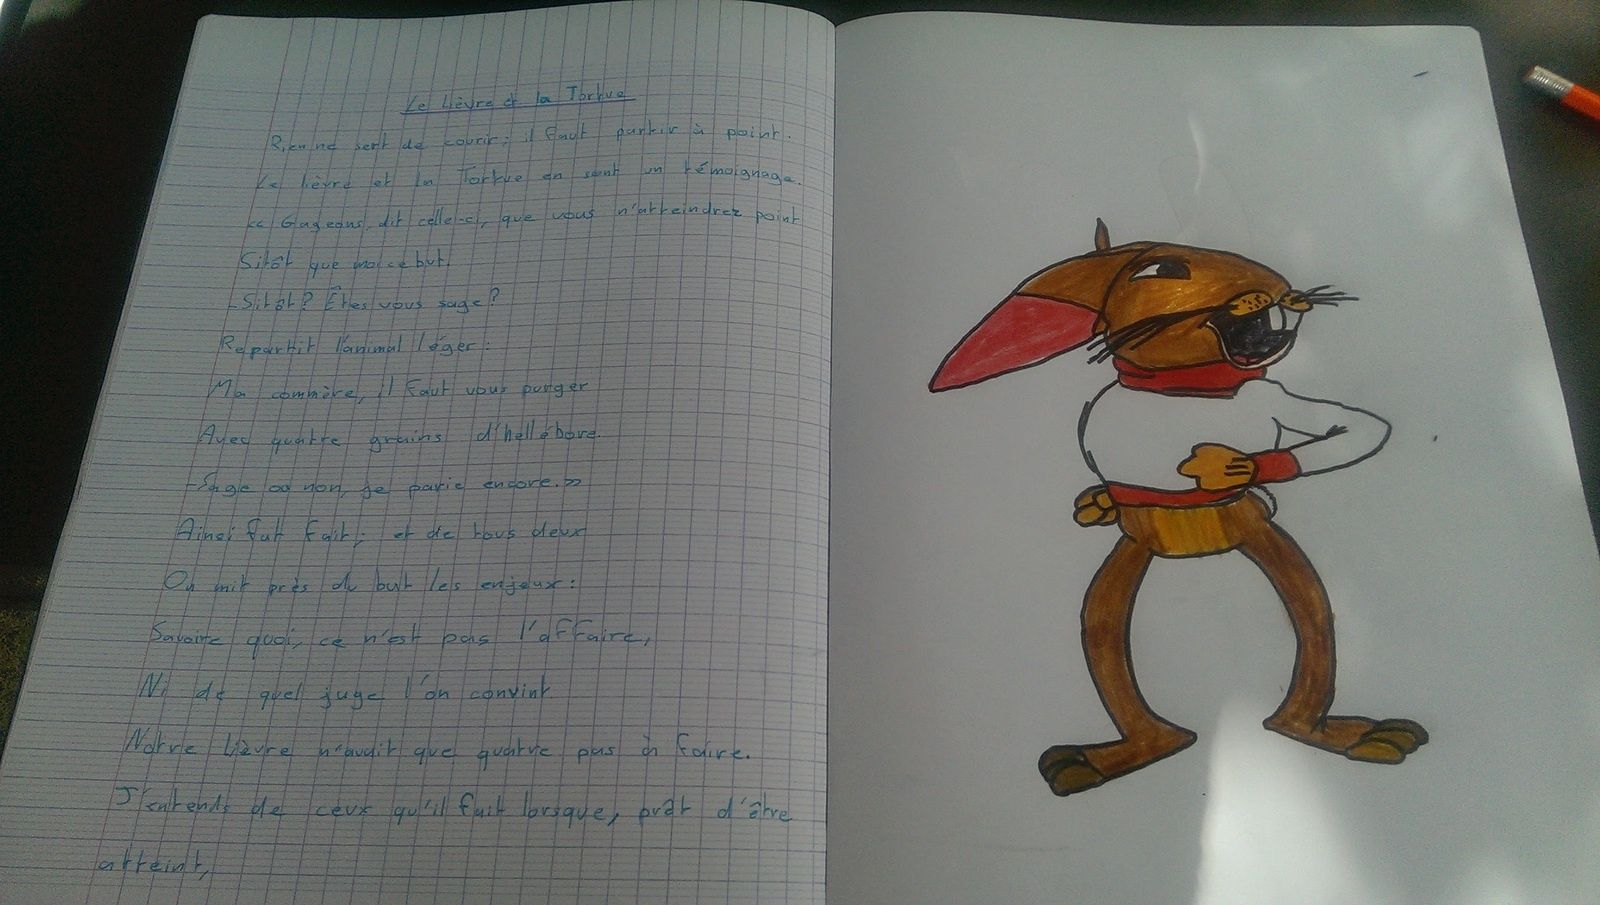 Le lièvre et la Tortue
Rien ne sert de courir; il faut partir à point.
Le lièvre et la Tortue en sont un témoignage.
<< Gageons, dit celle-ci, que vous n'atteindrez point
Sitôt que moi ce but.
-Sitôt? Êtes vous sage?
Repartit l'animal léger:
Ma commère, il faut vous purger
Avec quatre grains d'hellébore.
-Sage ou non, je parie encore.>>
Ainsi fut fait; et de tous deux
On mit près du but les enjeux:
Savoire quoi, ce n'est pas l'affaire,
Ni de quel juge l'on convint.
Notre lièvre n'avait que quatre pas à faire.
J'entends de ceux qu'il fait lorsque, prêt d'être
atteint,